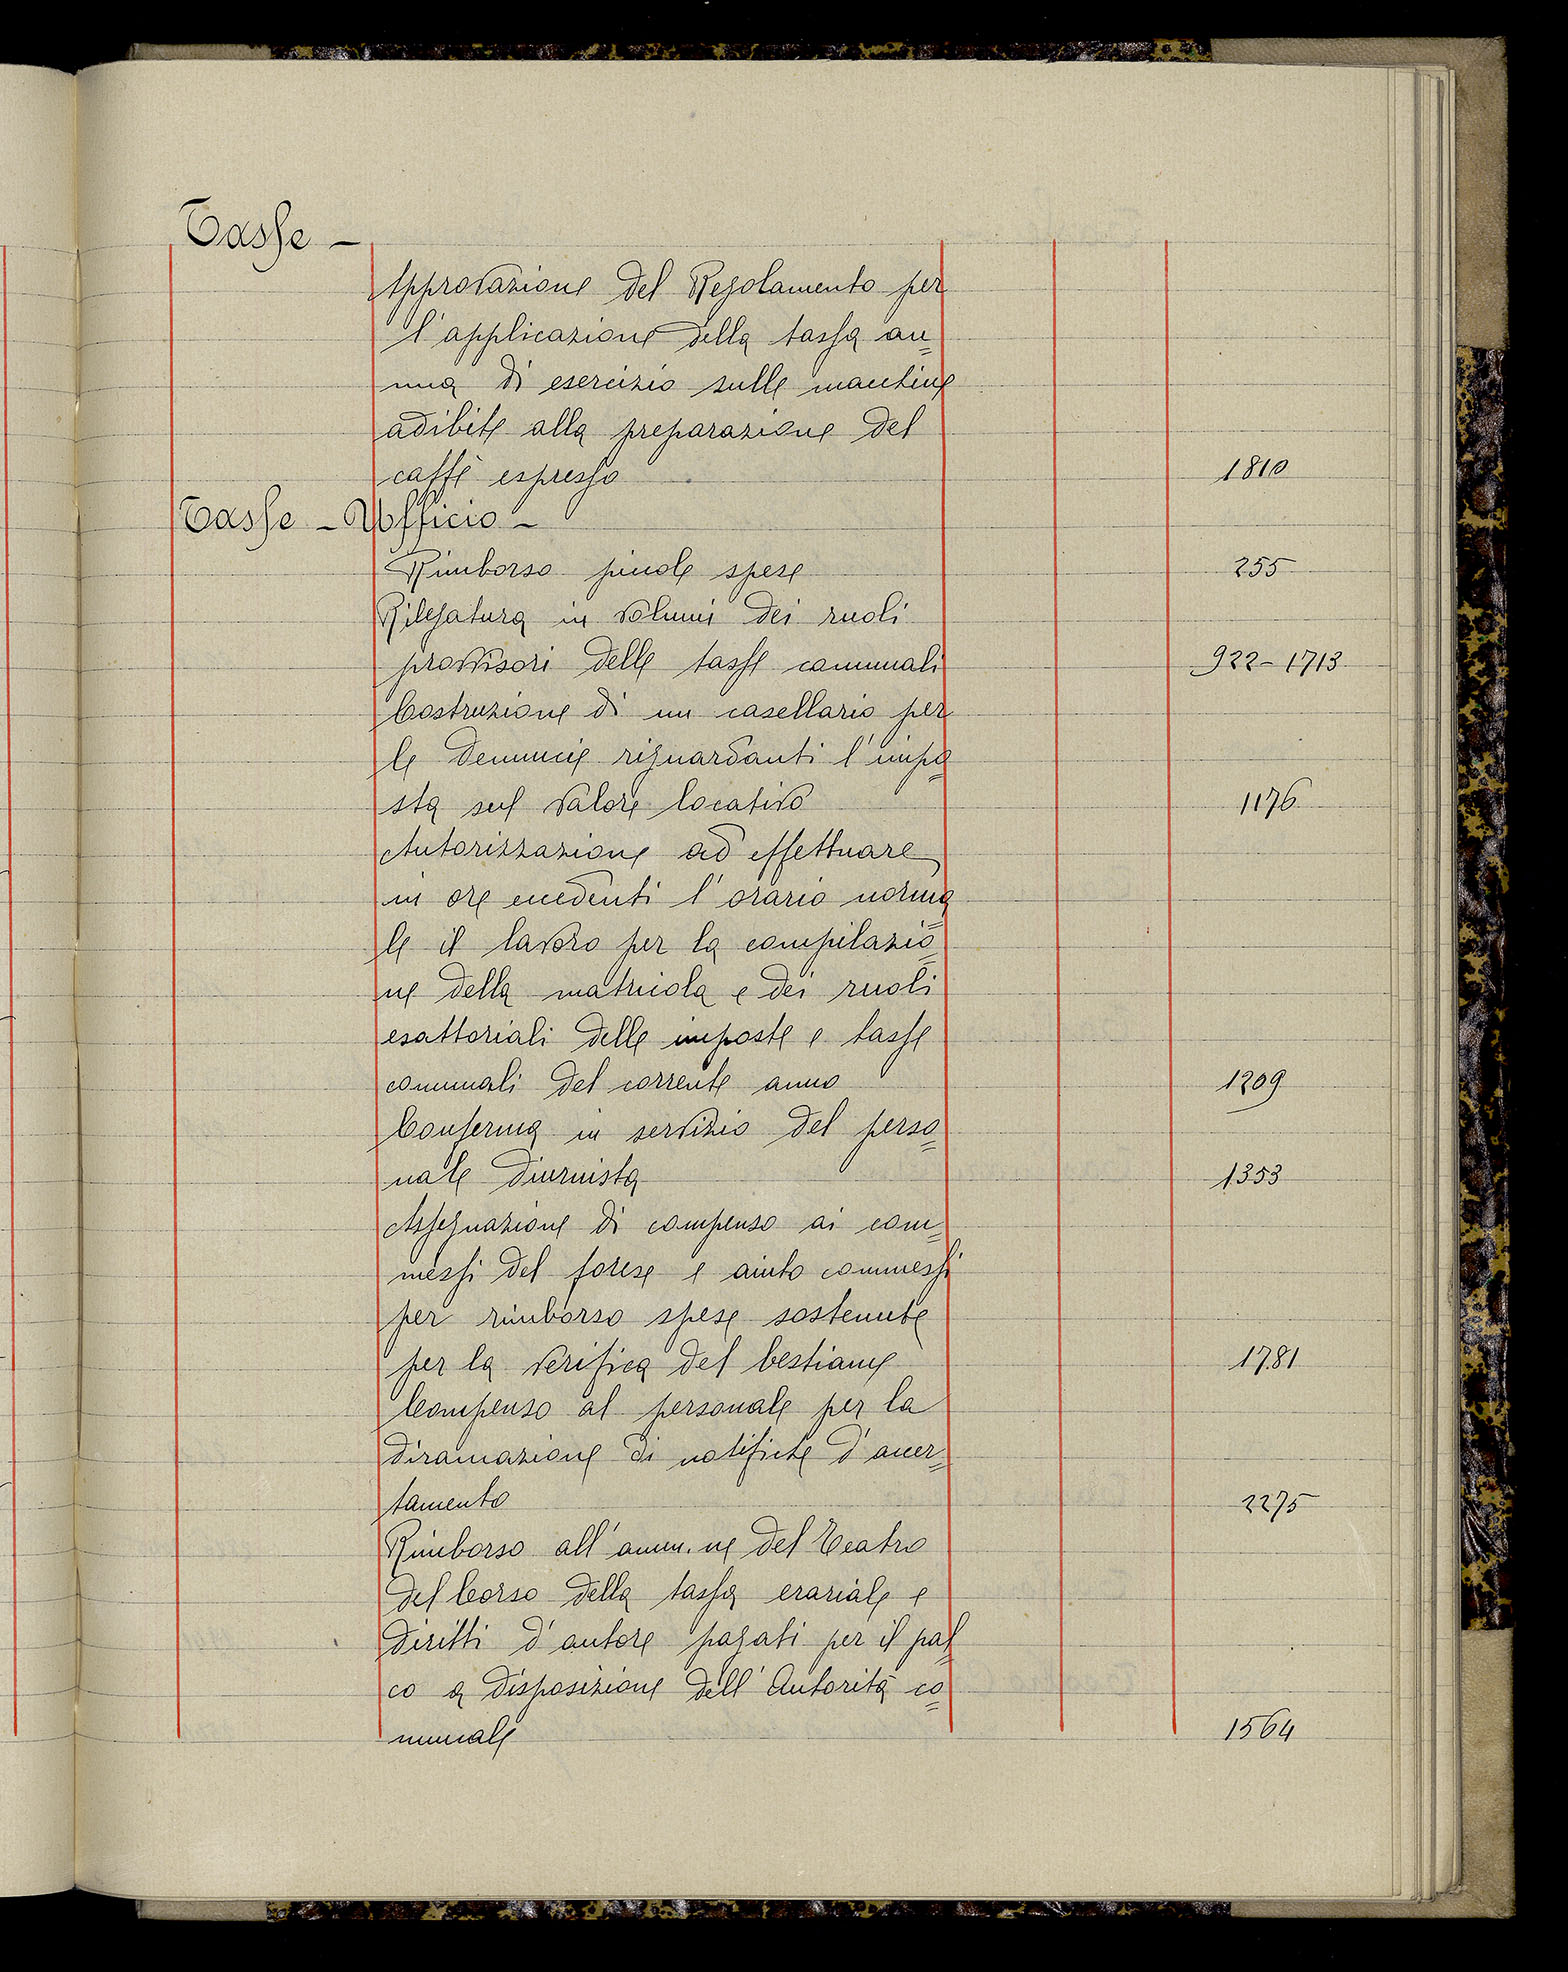 Tasse –
Approvazione del Regolamento per
l'applicazione della tassa an=
nua di esercizio sulle macchine
adibite alla preparazione del
caffè espresso 1810
Tasse – Ufficio –
Rimborso piccole spese 255
Rilegatura in volumi dei ruoli
provvisori delle tasse comunali 922–1713
Costruzione di un casellario per
le denuncie riguardanti l'impo=
sta sul valore locativo 1176
Autorizzazione ad effettuare
in ore eccedenti l'orario norma=
le il lavoro per la compilazio=
ne della matricola e dei ruoli
esattoriali delle imposte e tasse
comunali del corrente anno 1209
Conferma in servizio del perso=
nale diurnista 1353
Assegnazione di compenso ai com=
messi del forese e aiuto commessi
per rimborso spese sostenute
per la verifica del bestiame 1781
Compenso al personale per la
diramazione di notifiche d'accer=
tamento 2275
Rimborso all'amm.ne del Teatro
del Corso della tassa erariale e
diritti d'autore pagati per il pal=
co a disposizione dell'Autorità co=
munale 1564